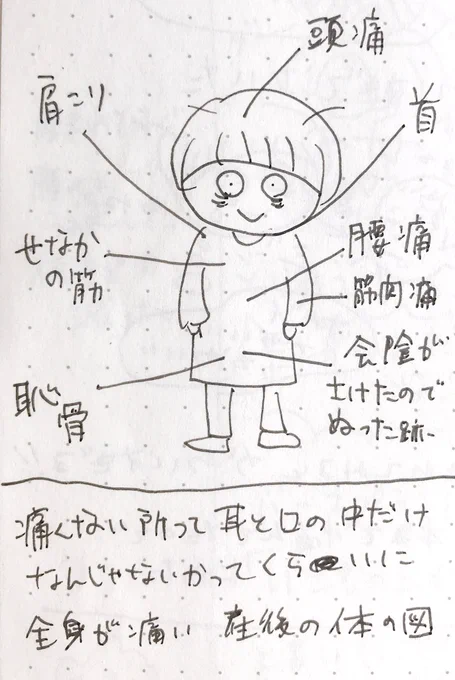 頭痛
肩こり
首
せなか
の筋
腰痛
筋肉痛
会陰が
さけたので
ぬった跡
恥
骨
痛くない所って耳と口の中だけ
なんじゃないかってくらいに
全身が痛い 産後の体の図